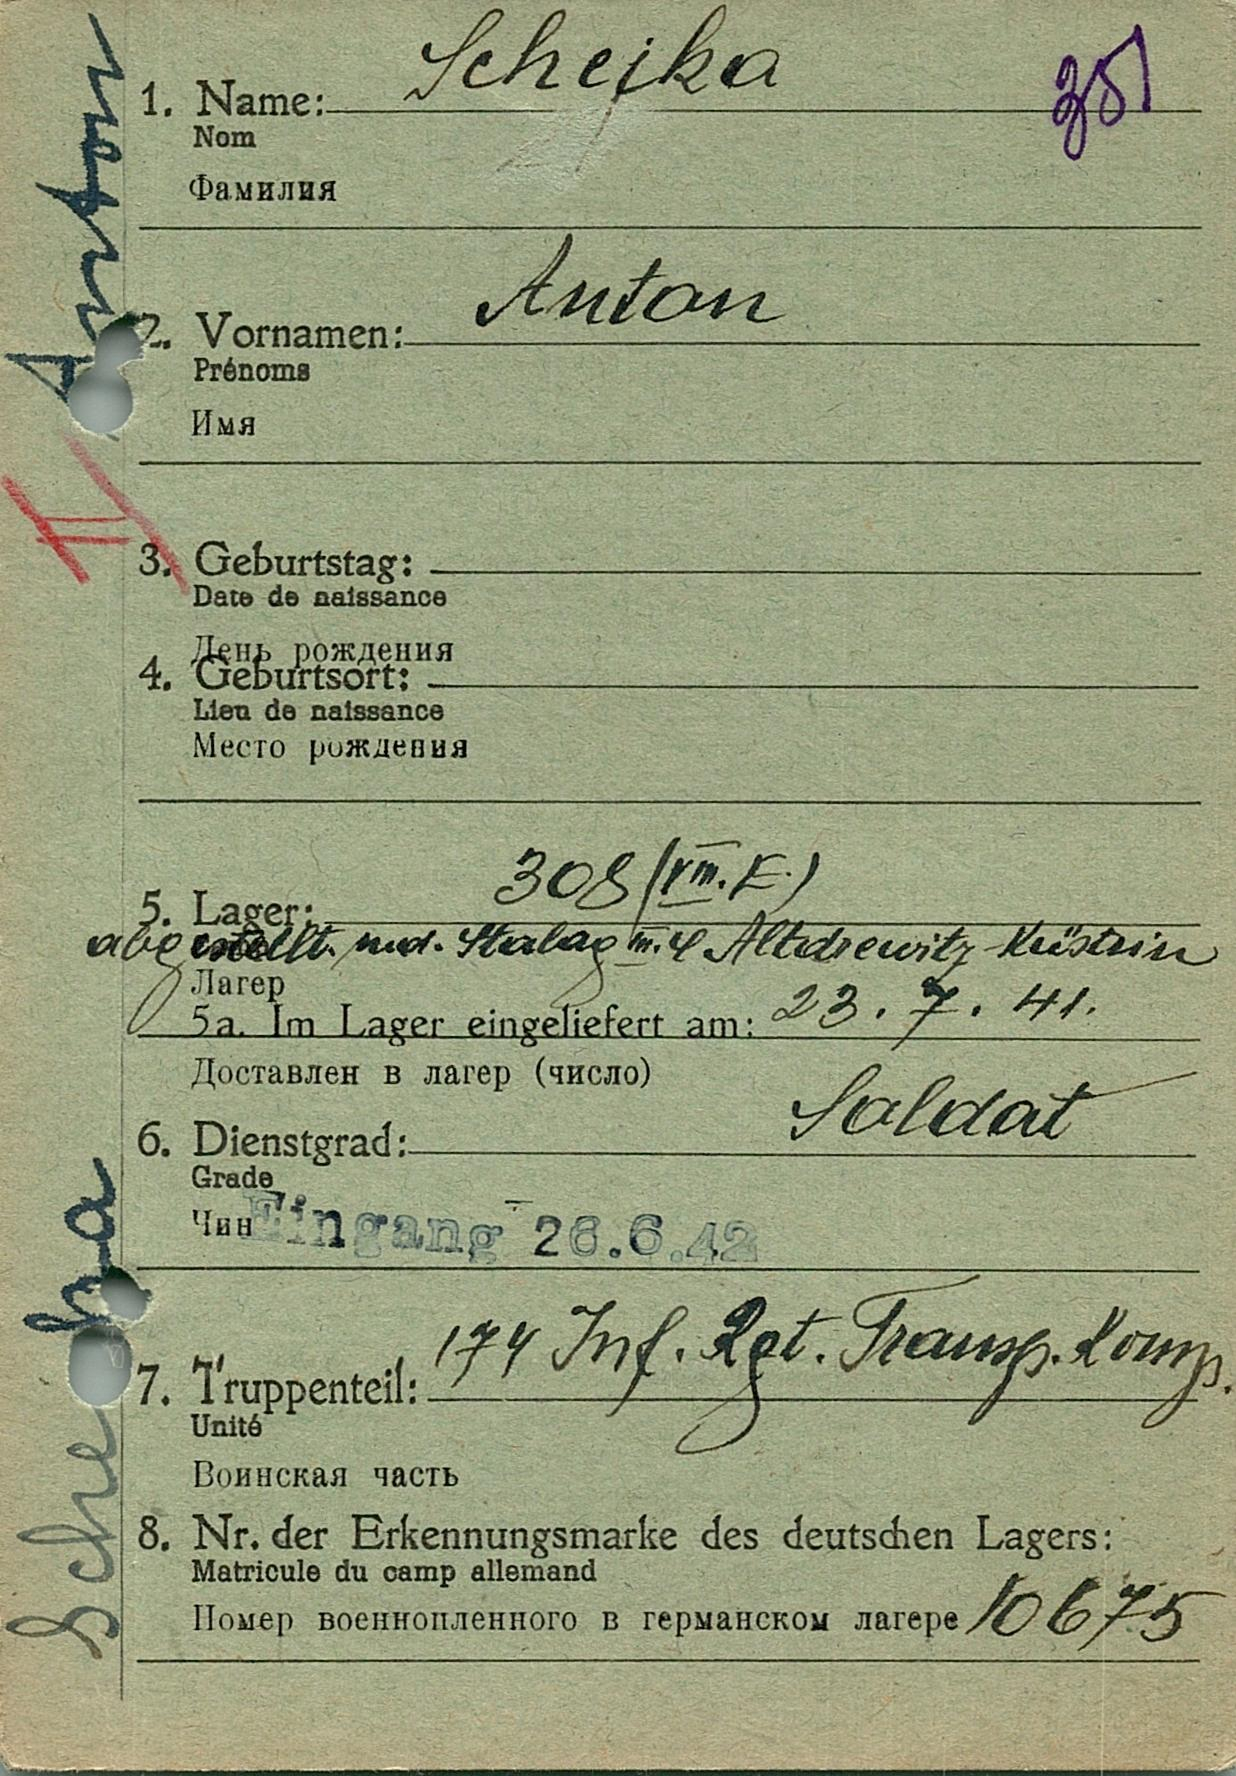 Schejka
1. Name:
Nom
Фамилия
Anton
2. Vornamen:
Prénoms
Имя
3. Geburtstag:
Date de naissance
День рождения
4. Geburtsort:
Lieu de naissance
Место рождения
308 (VIII. E.)
5. Lager:
abgestellt. n. d. Stalag III. C Altdrewitz-Küstrin
Лагер
5a. Im Lager eingeliefert am: 23. 7. 41.
Доставлен в лагер (число)
6. Dienstgrad: Soldat
Grade
Чин
Eingang 26.6.42
174 Inf. Rgt. Transp. Komp.
7. Truppenteil:
Unité
Воинская часть
8. Nr. der Erkennungsmarke des deutschen Lagers:
Matricule du camp allemand
Номер военнопленного в германском лагере 10675
Anton